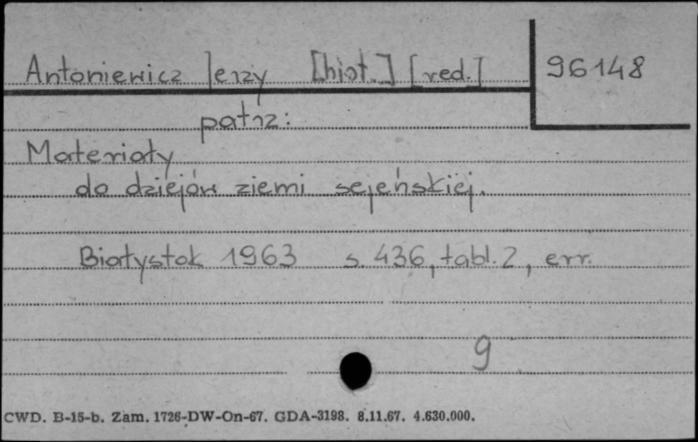 Antoniewicz Jerzy [hist.] [red.] 96148
patrz:
Materiały
do dziejów ziemi sejeńskiej.
Białystok 1963 s. 436, tabl. 2, err.
9
CWD. B-15-b. Zam. 1726-DW-On-67. GDA-3198. 8.11.67. 4.630.000.